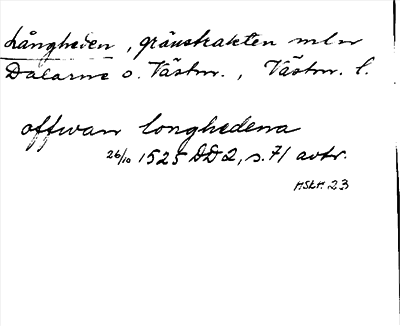 Långheden, gränstrakten mlm
Dalarne o. Västm., Västm. l.
offwan longhedena
26/10 1525 DD 2, s. 71 avtr.
HSLH 23